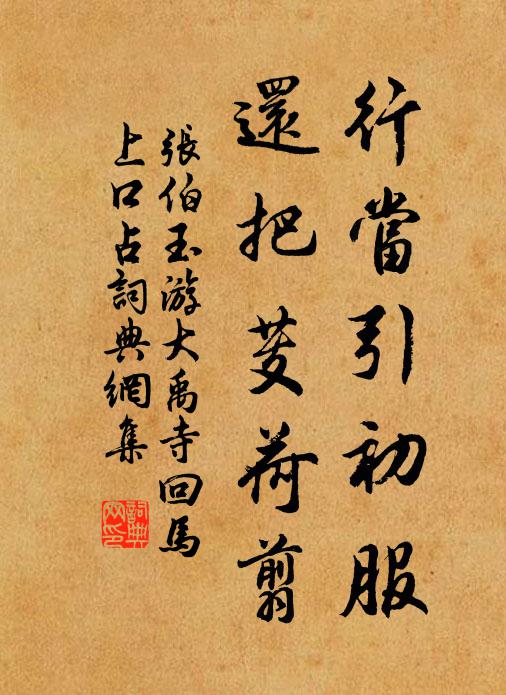 行當引初服
還把芰荷翦
張伯玉游大禹寺回馬
上口占詞典網集
詞典网印